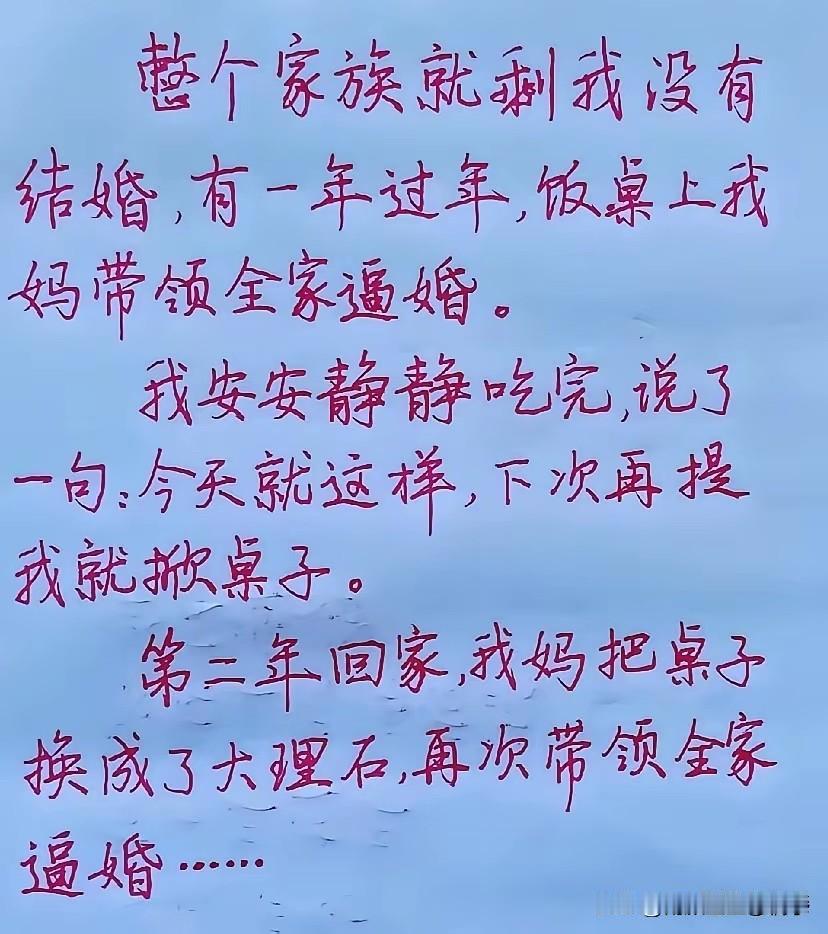 整个家族就剩我没有
结婚,有一年过年,饭桌上我
妈带领全家逼婚。
我安安静静吃完,说了
一句:今天就这样,下次再提
我就掀桌子。
第二年回家,我妈把桌子
换成了大理石,再次带领全家
逼婚……